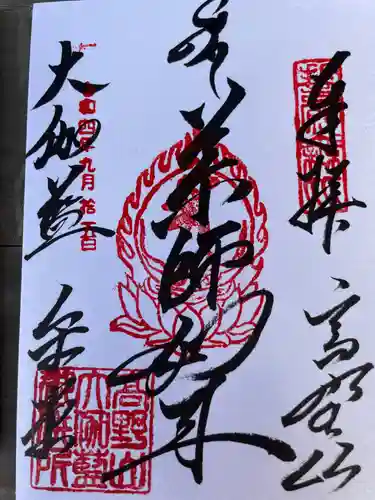 奉拝
高野山
薬師如来
大伽藍
令和四年九月拾五日
金堂
高野山
大伽藍
御供所